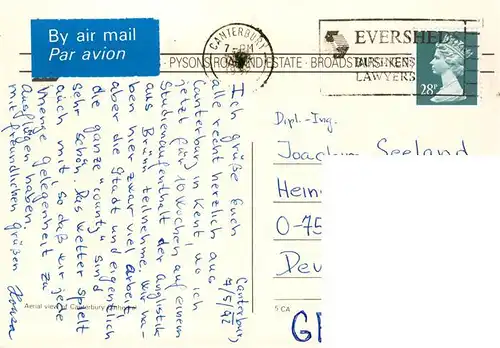 By air mail
Par avion
CANTERBURY
7-PM
EVERSHEDS
BUSINESS
LAWYERS
28P
PYSONS ROAD IND ESTATE - BROADSTAIRS KENT
Canterbury,
7/5/92
Ich grüße Euch
alle recht herzlich aus
Canterbury in Kent, wo ich
jetzt für 10 Wochen auf einem
Studienaufenthalt der Anglistik
aus Brünn teilnehme. Wir ha-
ben hier zwar viel Arbeit,
aber die Stadt und eigentlich
die ganze "county" sind
sehr schön. Das Wetter spielt
auch mit so daß wir jede
Menge Gelegenheit zu
Ausflügen haben.
Mit freundlichen Grüßen
Dipl.-Ing.
Joachim Seeland
Hein
O-75
Deu
G
Aerial view of Canterbury Cathedral
5 CA